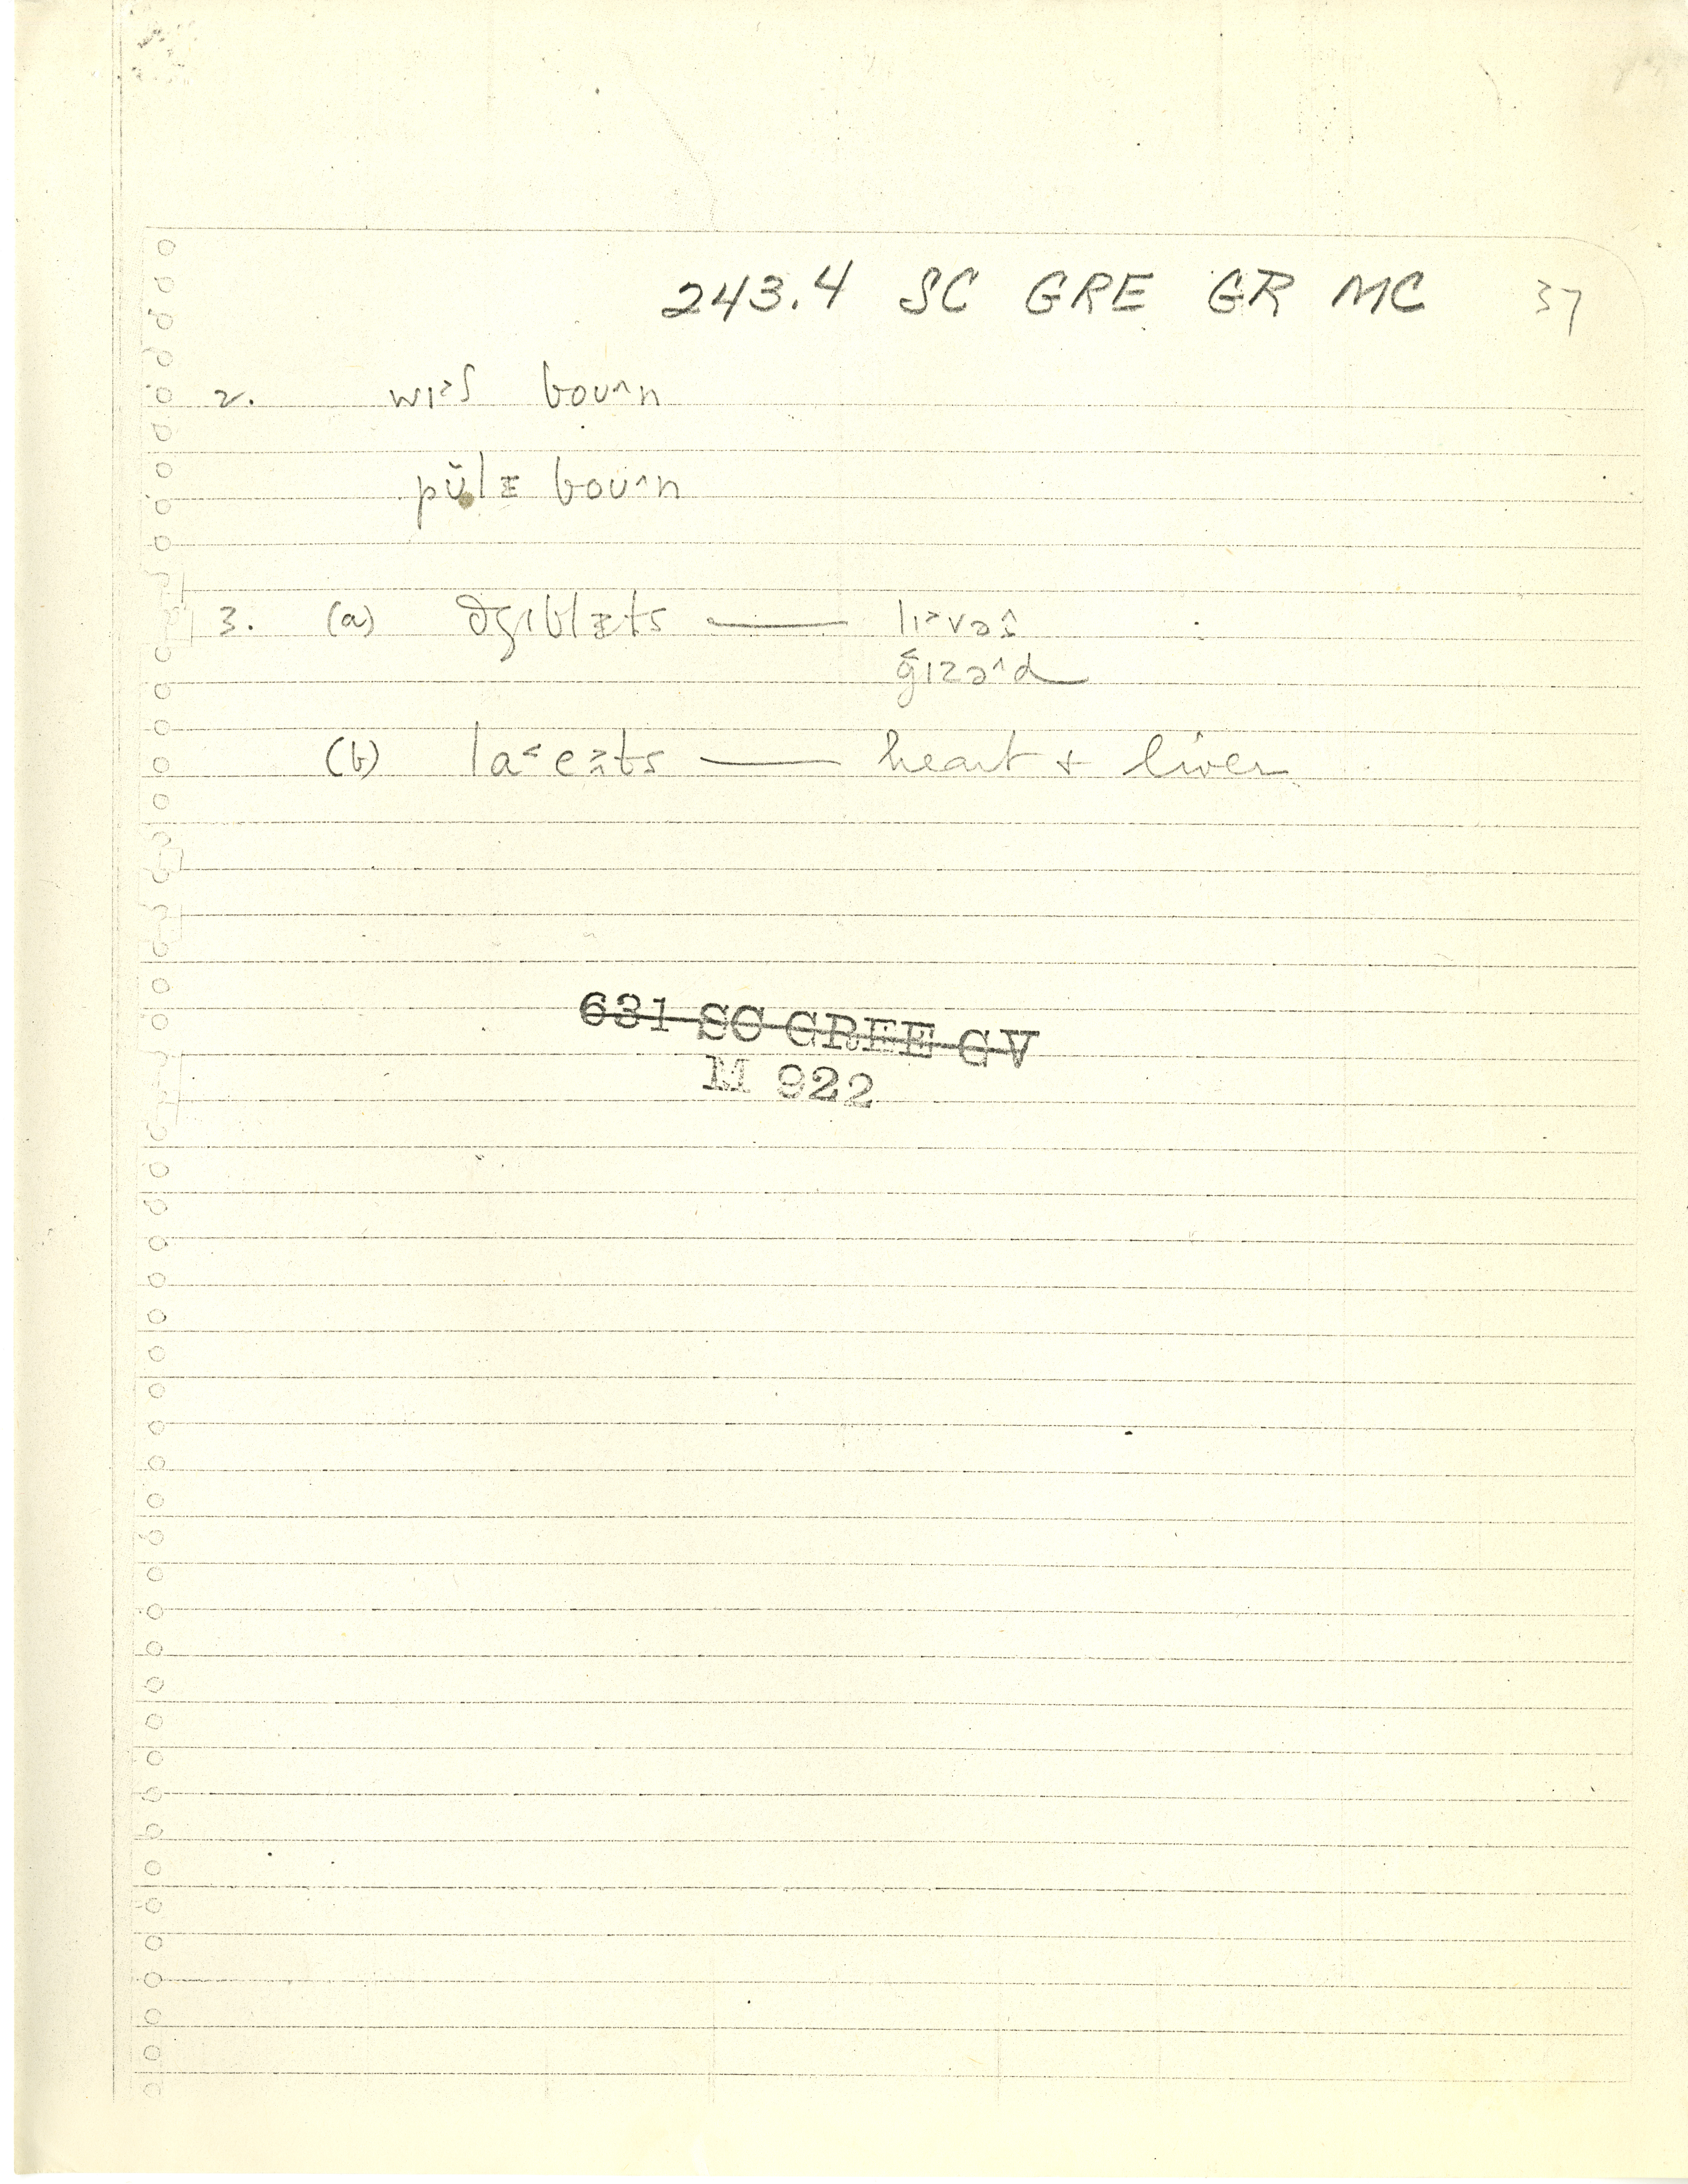 243.4 SC GRE GR MC 37
2. wɪ˃ʃ boʊ^n
pŭlɪ boʊ^n
3. (a) dʒɪblɪts — lɪ˃vəz
gɪzə^d
(b) laɪts — heart & liver
631 SC GREE GV
M 922